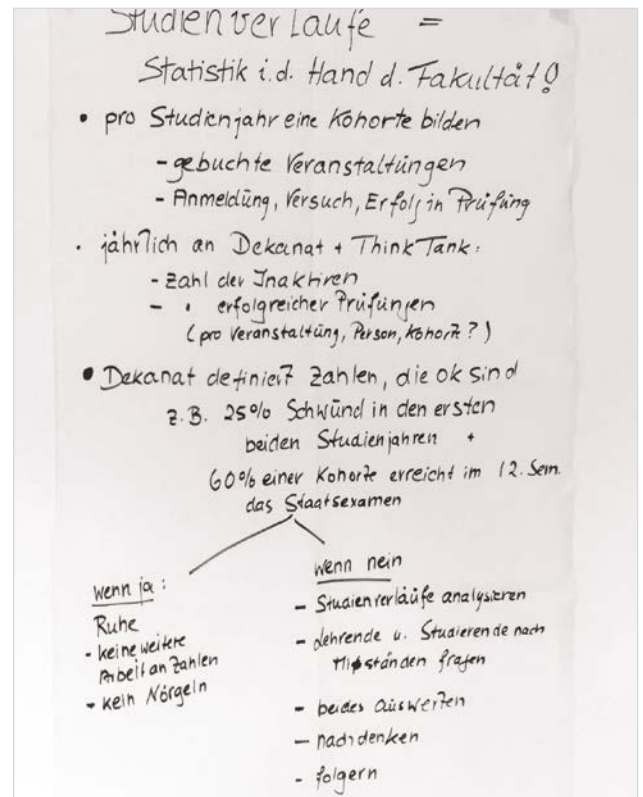 Studienverläufe =
Statistik i.d. Hand d. Fakultät!
• pro Studienjahr eine Kohorte bilden
- gebuchte Veranstaltungen
- Anmeldung, Versuch, Erfolg in Prüfung
• jährlich an Dekanat + ThinkTank:
- Zahl der Inaktiven
- " erfolgreicher Prüfungen
(pro Veranstaltung, Person, Kohorte?)
• Dekanat definiert Zahlen, die ok sind
z.B. 25% Schwund in den ersten
beiden Studienjahren +
60% einer Kohorte erreicht im 12. Sem.
das Staatsexamen
wenn ja:
Ruhe
- keine weitere
Arbeit an Zahlen
- kein Nörgeln
wenn nein
- Studienverläufe analysieren
- Lehrende u. Studierende nach
Mißständen fragen
- beides auswerten
- nachdenken
- folgern